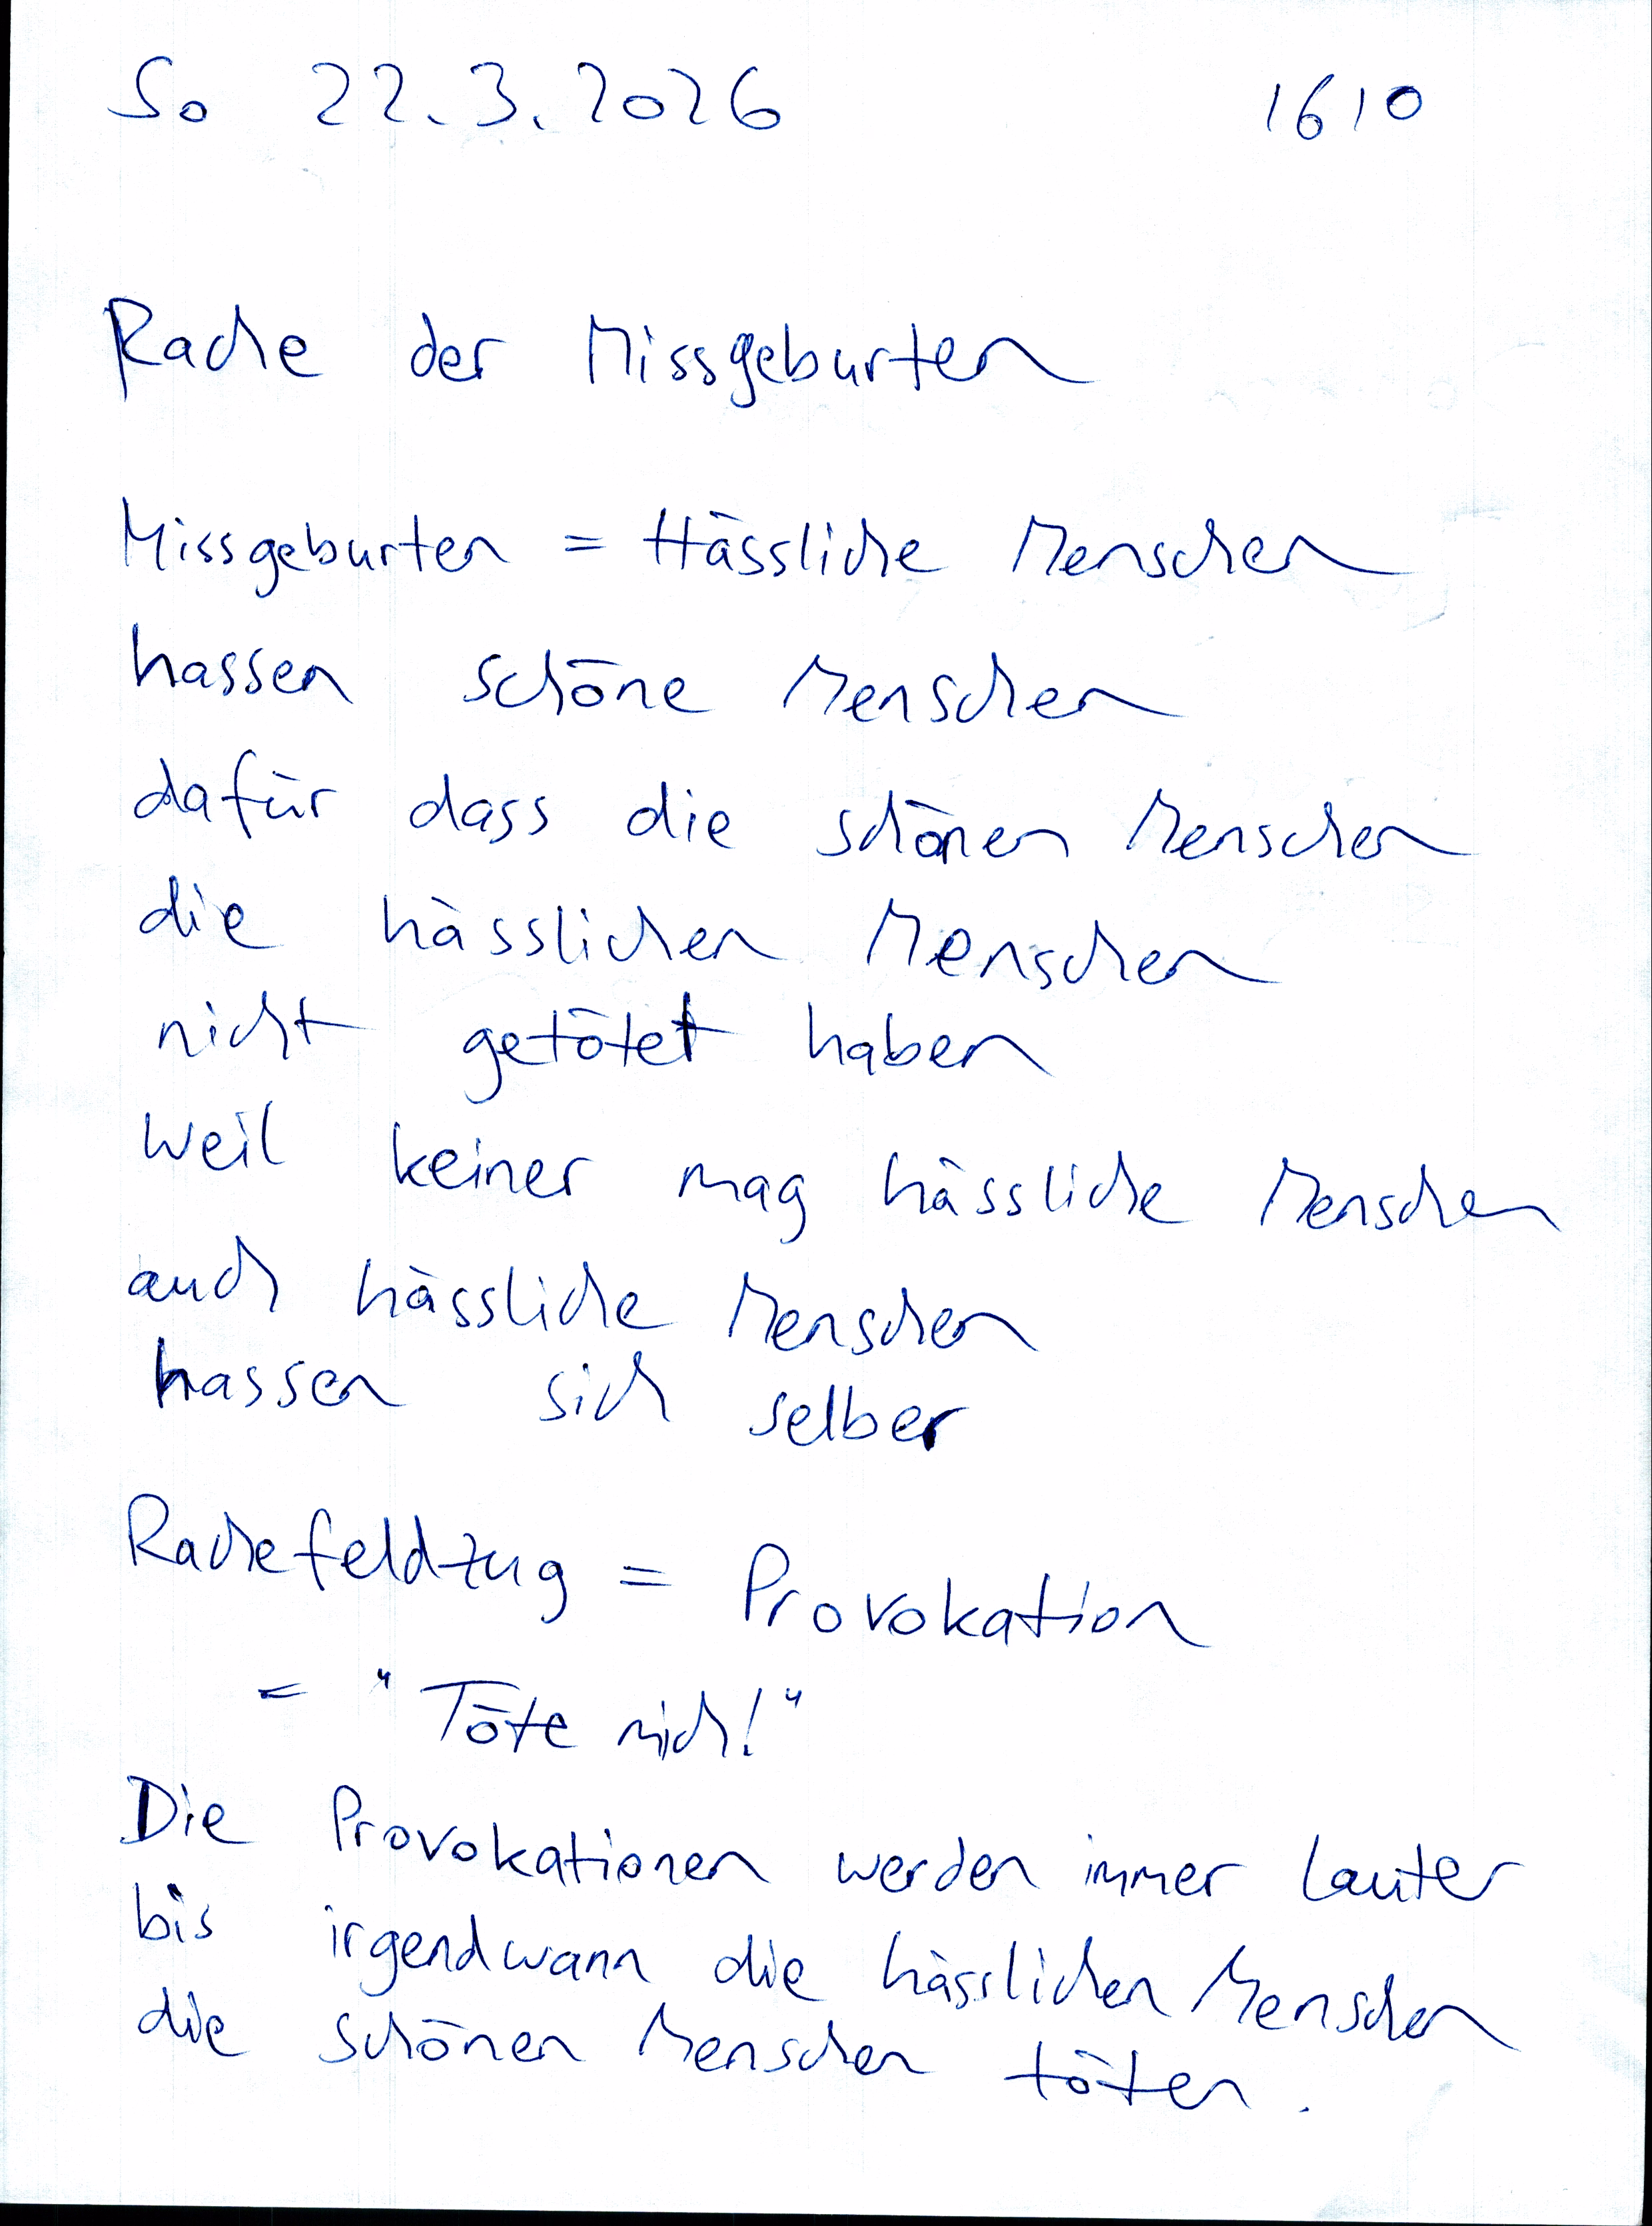 So 22.3.2026 1610
Rache der Missgeburten
Missgeburten = Hässliche Menschen
hassen schöne Menschen
dafür dass die schönen Menschen
die hässlichen Menschen
nicht getötet haben
weil keiner mag hässliche Menschen
auch hässliche Menschen
hassen sich selber
Rachefeldzug = Provokation
= "Töte mich!"
Die Provokationen werden immer lauter
bis irgendwann die hässlichen Menschen
die schönen Menschen töten.